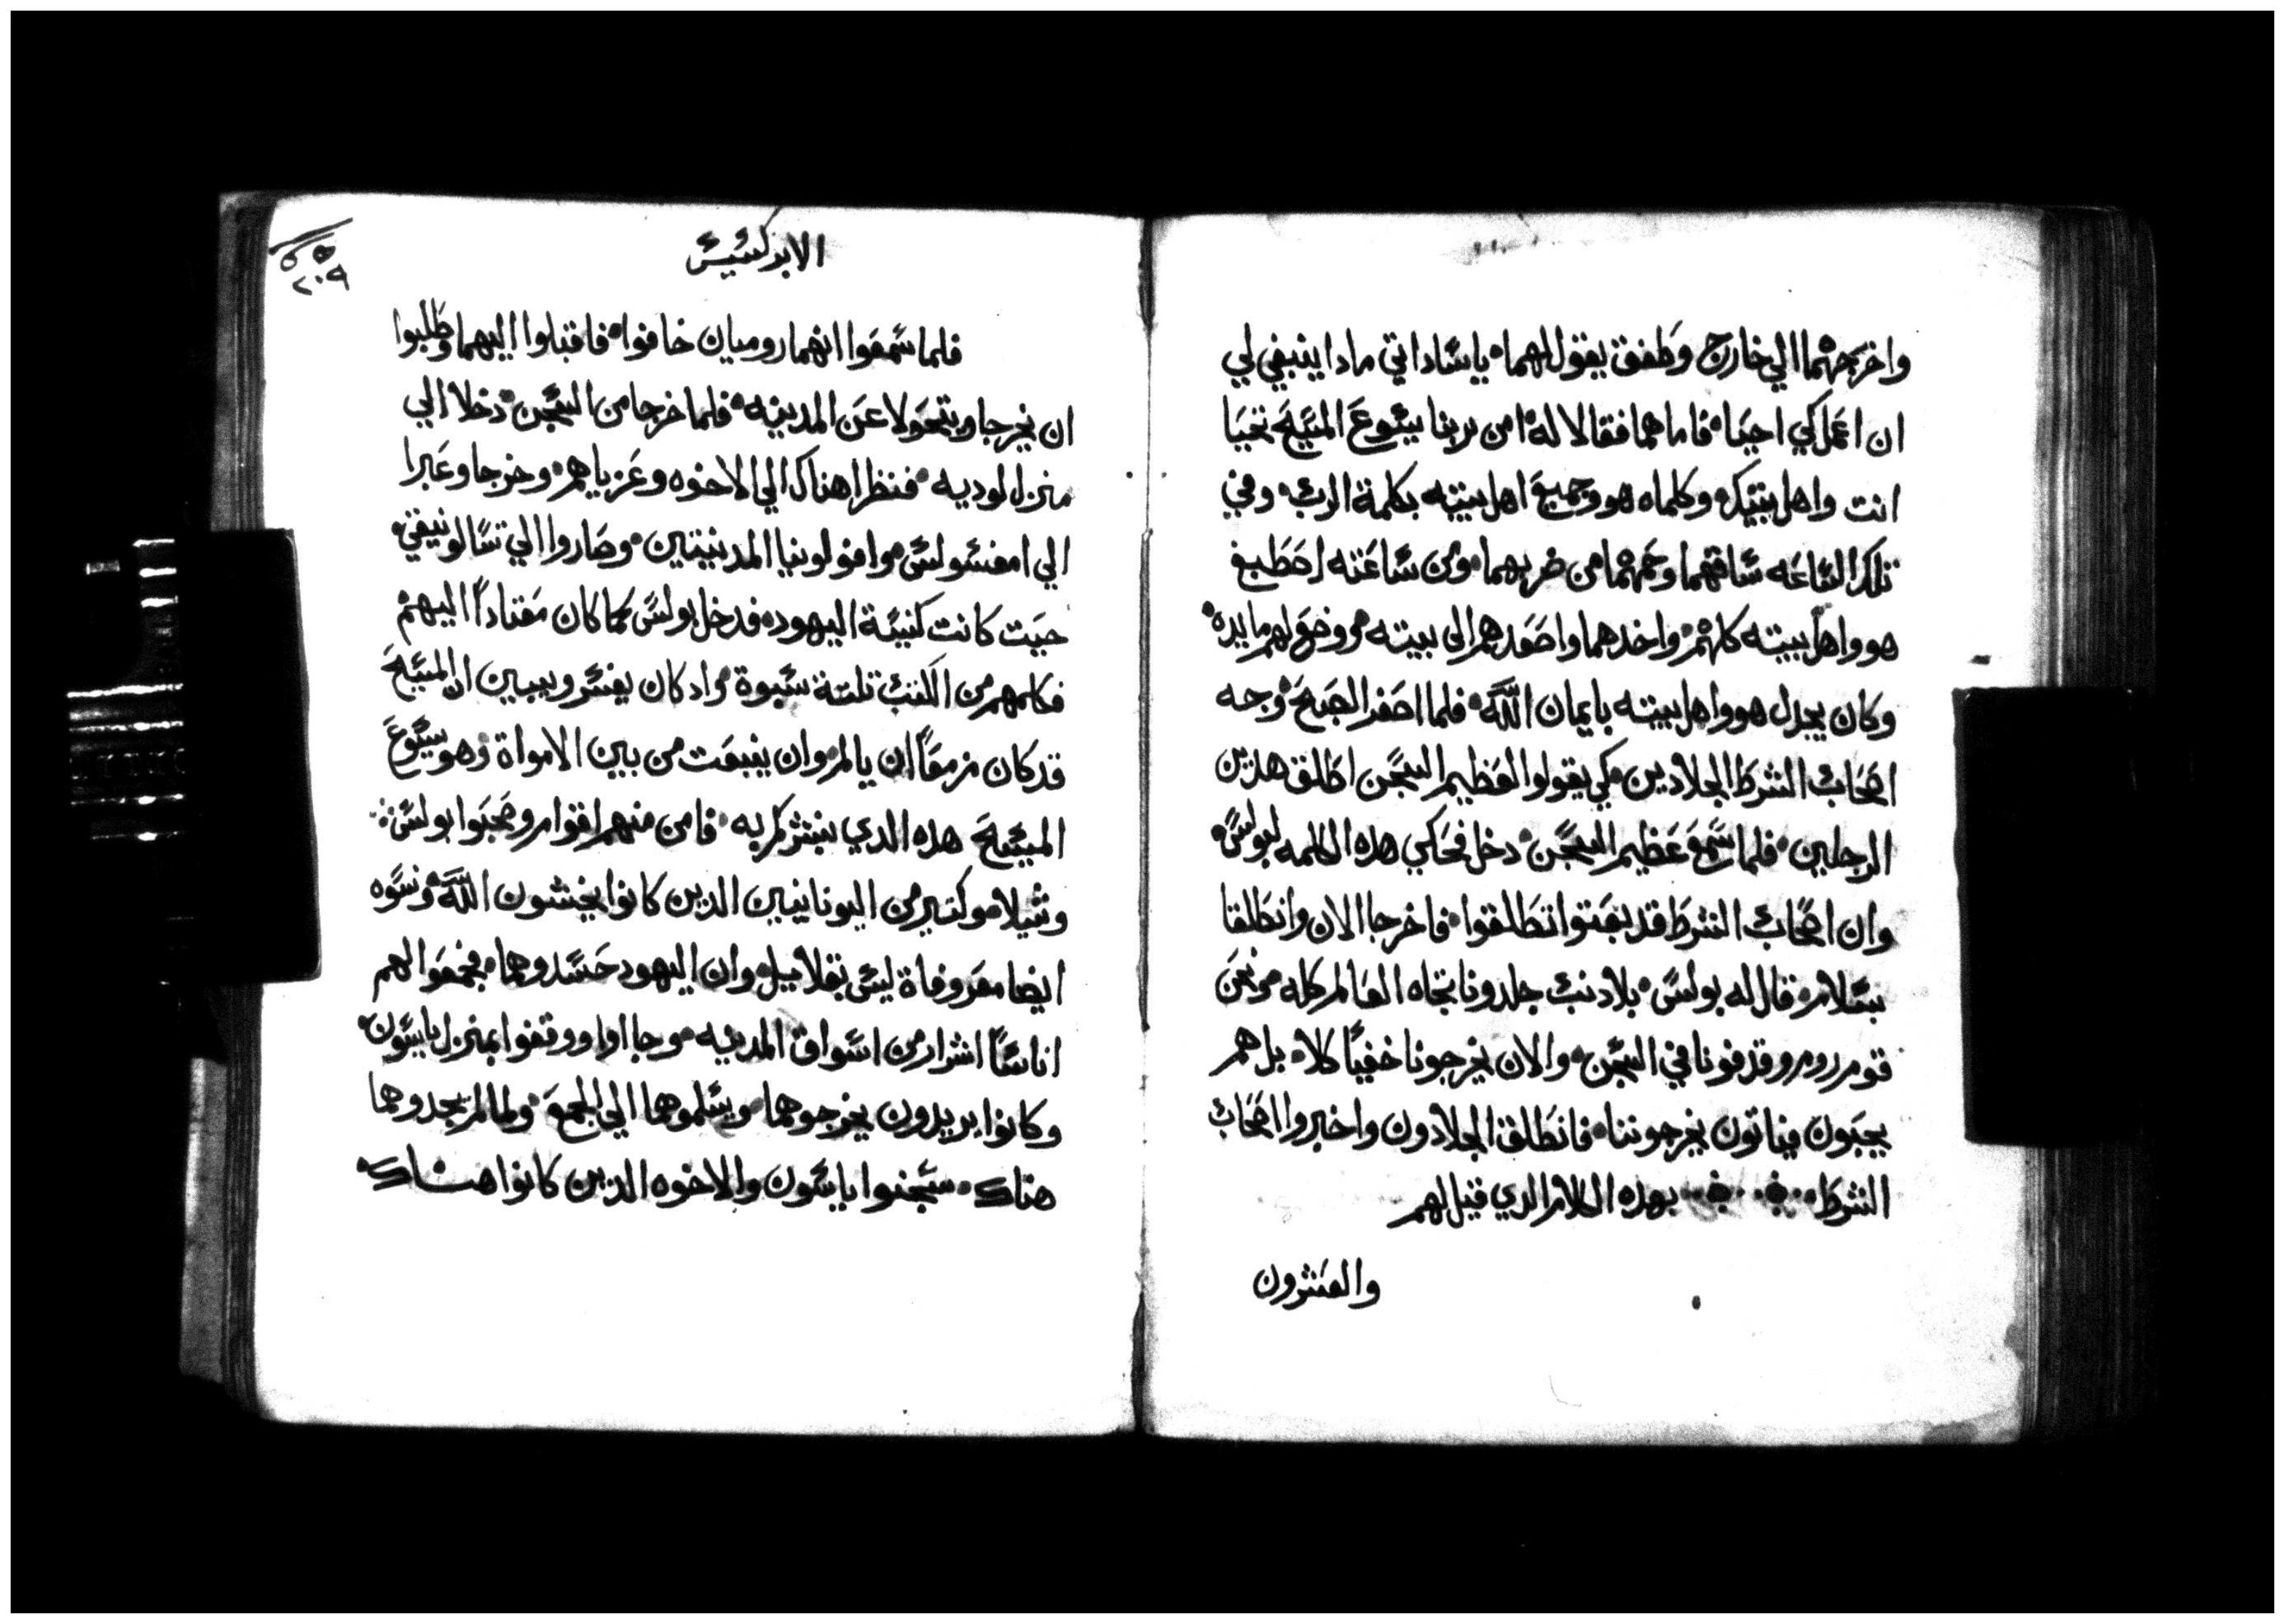 واخرجهما الي خارج وطفق يقول لهما ياساداتي مادا ينبغي لي
ان اعمل كي احيا فاما هما فقالا له امن بربنا يسوع المسيح تحيا
انت واهل بيتك وكلماه هو وجميع اهل بيته بكلمة الرب وفي
تلك الساعه ساقهما وحمهما من ضربهما ومن ساعته اصطبغ
هو واهل بيته كلهم واخدهما واصعدهم الى بيته ووضع لهم مايده
وكان يجدل هو واهل بيته بايمان الله فلما اصفر الصبح وجه
اصحاب الشرط الجلادين كي يقولوا لعظيم السجن اطلق هدين
الرجلين فلما سمع عظيم السجن دخل فحكي هده الكلمه لبولس
وان اصحاب الشرط قد بعتوا تطلقوا فاخرجا الان وانطلقا
بسلام قال له بولس بلا دنب جلدونا تجاه العالم كله ونحن
قوم روم وقدفونا في السجن والان يخرجونا خفيا كلا بل هم
يجبون فياتون يخرجوننا فانطلق الجلادون واخبروا اصحاب
الشرط بهده الكلام الدي قيل لهم
والعشرون
الابركسيس
٢٠٩
فلما سمعوا انهما روميان خافوا فاقبلوا اليهما وطلبوا
ان يخرجا ويتحولا عن المدينه فلما خرجا من السجن دخلا الي
منزل لوديه فنظرا هناك الي الاخوه وعزياهم وخرجا وعبرا
الي امفسولس وافولونيا المدينتين وصاروا الي تسالونيقي
حيت كانت كنيسة اليهود فدخل بولس كما كان معتاداً اليهم
فكلمهم من الكتب تلتة سبوة واد كان يفسر ويبين ان المسيح
قد كان مزمعاً ان يالم وان ينبعت من بين الامواة وهو يسوع
المسيح هده الدي ابشركم به فامن منهم اقوام وصحبوا بولس
وشيلا وكتير من اليونانيين الدين كانوا يخشون الله ونسوه
ايضا معروفاة ليس بقلاييل وان اليهود حسدوهما فجمعوا لهم
اناساً اشرار من اسواق المدينه وجااوا ووقفوا بمنزل ياسون
وكانوا يريدون يخرجوهما ويسلموهما الي الجمع ولما لم يجدوهما
هناك سجنوا ياسون والاخوه الدين كانوا هناك